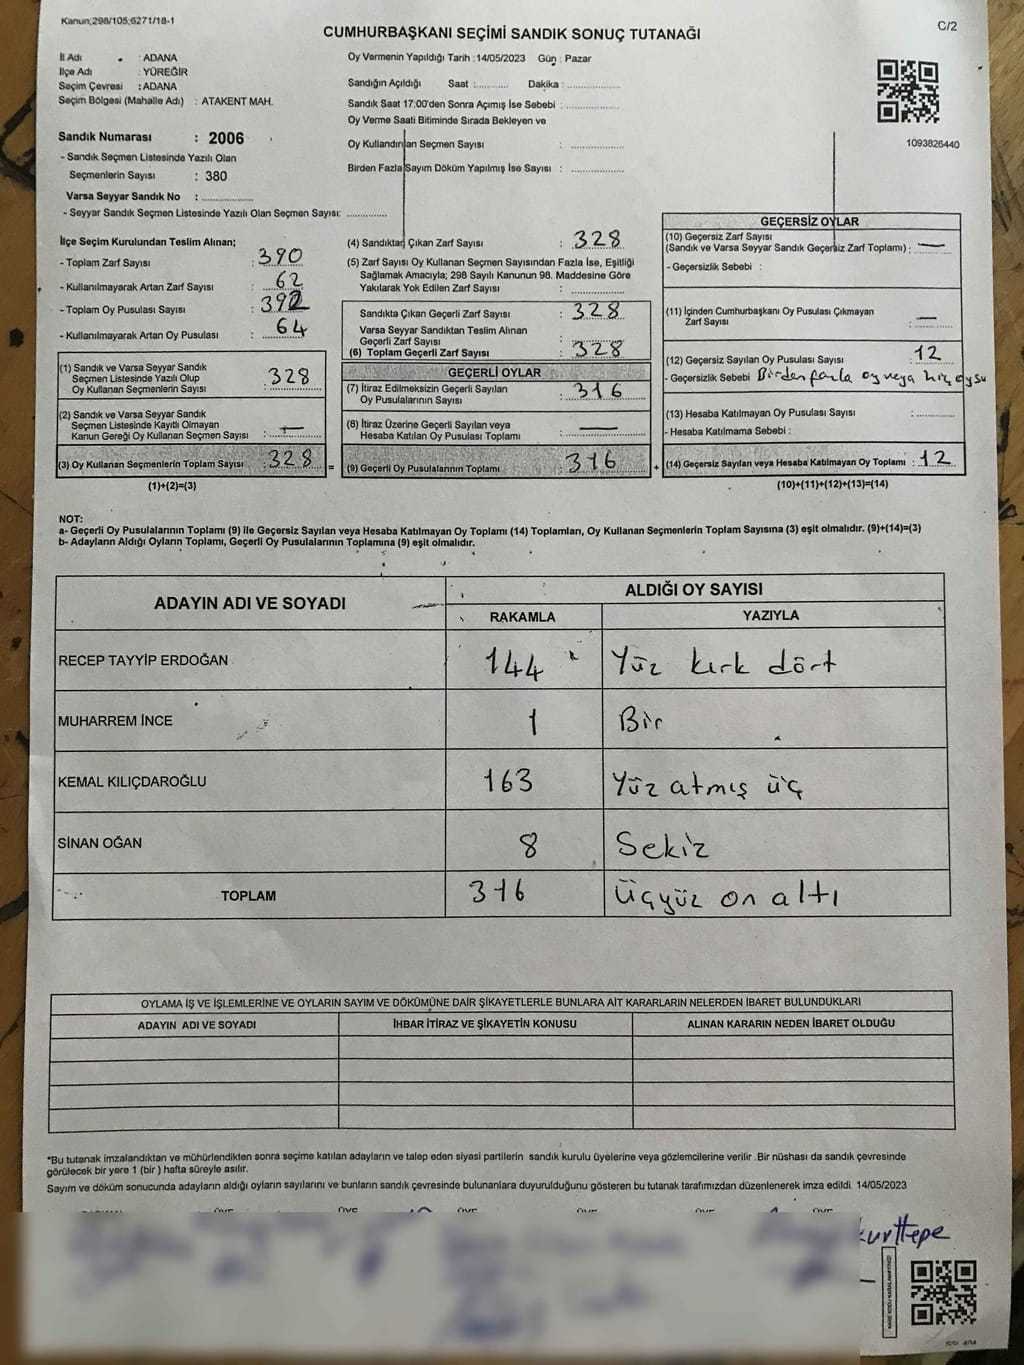 Kanun;298/105;6271/18-1
C/2
CUMHURBAŞKANI SEÇİMİ SANDIK SONUÇ TUTANAĞI
İl Adı : ADANA
İlçe Adı : YÜREĞİR
Seçim Çevresi : ADANA
Seçim Bölgesi (Mahalle Adı) : ATAKENT MAH.
Sandık Numarası : 2006
- Sandık Seçmen Listesinde Yazılı Olan
Seçmenlerin Sayısı : 380
Varsa Seyyar Sandık No :
- Seyyar Sandık Seçmen Listesinde Yazılı Olan Seçmen Sayısı:
Oy Vermenin Yapıldığı Tarih : 14/05/2023 Gün : Pazar
Sandığın Açıldığı Saat : Dakika :
Sandık Saat 17:00'den Sonra Açımış İse Sebebi :
Oy Verme Saati Bitiminde Sırada Bekleyen ve
Oy Kullandırılan Seçmen Sayısı :
Birden Fazla Sayım Döküm Yapılmış İse Sayısı :
1093826440
İlçe Seçim Kurulundan Teslim Alınan;
- Toplam Zarf Sayısı : 390
- Kullanılmayarak Artan Zarf Sayısı : 62
- Toplam Oy Pusulası Sayısı : 392
- Kullanılmayarak Artan Oy Pusulası : 64
(1) Sandık ve Varsa Seyyar Sandık
Seçmen Listesinde Yazılı Olup
Oy Kullanan Seçmenlerin Sayısı : 328
(2) Sandık ve Varsa Seyyar Sandık
Seçmen Listesinde Kayıtlı Olmayan
Kanun Gereği Oy Kullanan Seçmen Sayısı : —
(3) Oy Kullanan Seçmenlerin Toplam Sayısı : 328
(1)+(2)=(3)
(4) Sandıktan Çıkan Zarf Sayısı : 328
(5) Zarf Sayısı Oy Kullanan Seçmen Sayısından Fazla İse, Eşitliği
Sağlamak Amacıyla; 298 Sayılı Kanunun 98. Maddesine Göre
Yakılarak Yok Edilen Zarf Sayısı :
Sandıkta Çıkan Geçerli Zarf Sayısı : 328
Varsa Seyyar Sandıktan Teslim Alınan
Geçerli Zarf Sayısı :
(6) Toplam Geçerli Zarf Sayısı : 328
GEÇERLİ OYLAR
(7) İtiraz Edilmeksizin Geçerli Sayılan
Oy Pusulalarının Sayısı : 316
(8) İtiraz Üzerine Geçerli Sayılan veya
Hesaba Katılan Oy Pusulası Toplamı : —
= (9) Geçerli Oy Pusulalarının Toplamı : 316 +
GEÇERSİZ OYLAR
(10) Geçersiz Zarf Sayısı
(Sandık ve Varsa Seyyar Sandık Geçersiz Zarf Toplamı) : —
- Geçersizlik Sebebi :
(11) İçinden Cumhurbaşkanı Oy Pusulası Çıkmayan
Zarf Sayısı : —
(12) Geçersiz Sayılan Oy Pusulası Sayısı : 12
- Geçersizlik Sebebi Birden fazla oy veya hiç oysu
(13) Hesaba Katılmayan Oy Pusulası Sayısı :
- Hesaba Katılmama Sebebi :
(14) Geçersiz Sayılan veya Hesaba Katılmayan Oy Toplamı : 12
(10)+(11)+(12)+(13)=(14)
NOT:
a- Geçerli Oy Pusulalarının Toplamı (9) ile Geçersiz Sayılan veya Hesaba Katılmayan Oy Toplamı (14) Toplamları, Oy Kullanan Seçmenlerin Toplam Sayısına (3) eşit olmalıdır. (9)+(14)=(3)
b- Adayların Aldığı Oyların Toplamı, Geçerli Oy Pusulalarının Toplamına (9) eşit olmalıdır.
ADAYIN ADI VE SOYADI ALDIĞI OY SAYISI
RAKAMLA YAZIYLA
RECEP TAYYİP ERDOĞAN 144 Yüz kırk dört
MUHARREM İNCE 1 Bir
KEMAL KILIÇDAROĞLU 163 Yüz atmış üç
SİNAN OĞAN 8 Sekiz
TOPLAM 316 Üçyüz on altı
OYLAMA İŞ VE İŞLEMLERİNE VE OYLARIN SAYIM VE DÖKÜMÜNE DAİR ŞİKAYETLERLE BUNLARA AİT KARARLARIN NELERDEN İBARET BULUNDUKLARI
ADAYIN ADI VE SOYADI İHBAR İTİRAZ VE ŞİKAYETİN KONUSU ALINAN KARARIN NEDEN İBARET OLDUĞU
*Bu tutanak imzalandıktan ve mühürlendikten sonra seçime katılan adayların ve talep eden siyasi partilerin sandık kurulu üyelerine veya gözlemcilerine verilir .Bir nüshası da sandık çevresinde
görülecek bir yere 1 (bir ) hafta süreyle asılır.
Sayım ve döküm sonucunda adayların aldığı oyların sayılarını ve bunların sandık çevresinde bulunanlara duyurulduğunu gösteren bu tutanak tarafımızdan düzenlenerek imza edildi. 14/05/2023
kurttepe